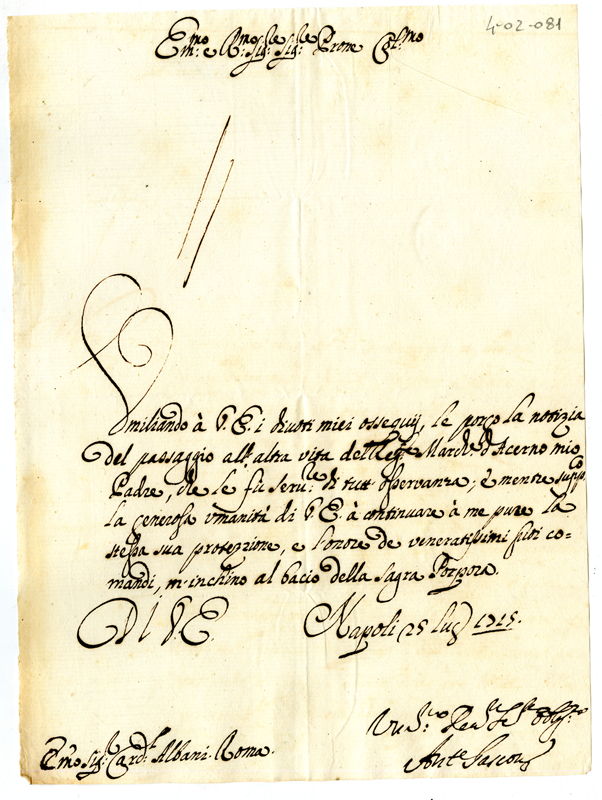 4-02-081
Em̃mo e Rmo Sigre Sigre Prone Colmo
Vmiliando à V. E. i diuoti miei ossequij, le porgo la notizia
del passaggio all'altra vita del March.e d'Acerno mio
Padre, che le fù seru.re di tutt'osseruanza; e mentre suppco
la generosa vmanità di V. E. à continuare à me pure la
stessa sua protezzione, e l'onore de veneratissimi suoi co=
mandi, m'inchino al bacio della sagra Porpora.
Di V. E. Napoli 25 lug.o 1715.
Obblig.mo
Em̃o Sig.r Card.l Albani. Roma.